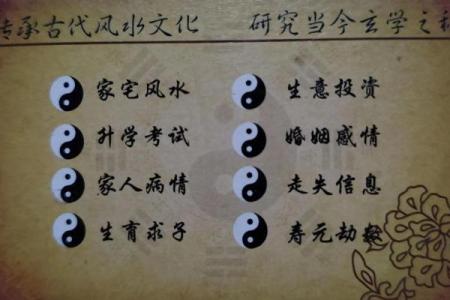 传承古代风水文化 研究当今玄学之
家宅风水 生意投资
升学考试 婚姻感情
家人病情 走失信息
生育求子 寿元劫